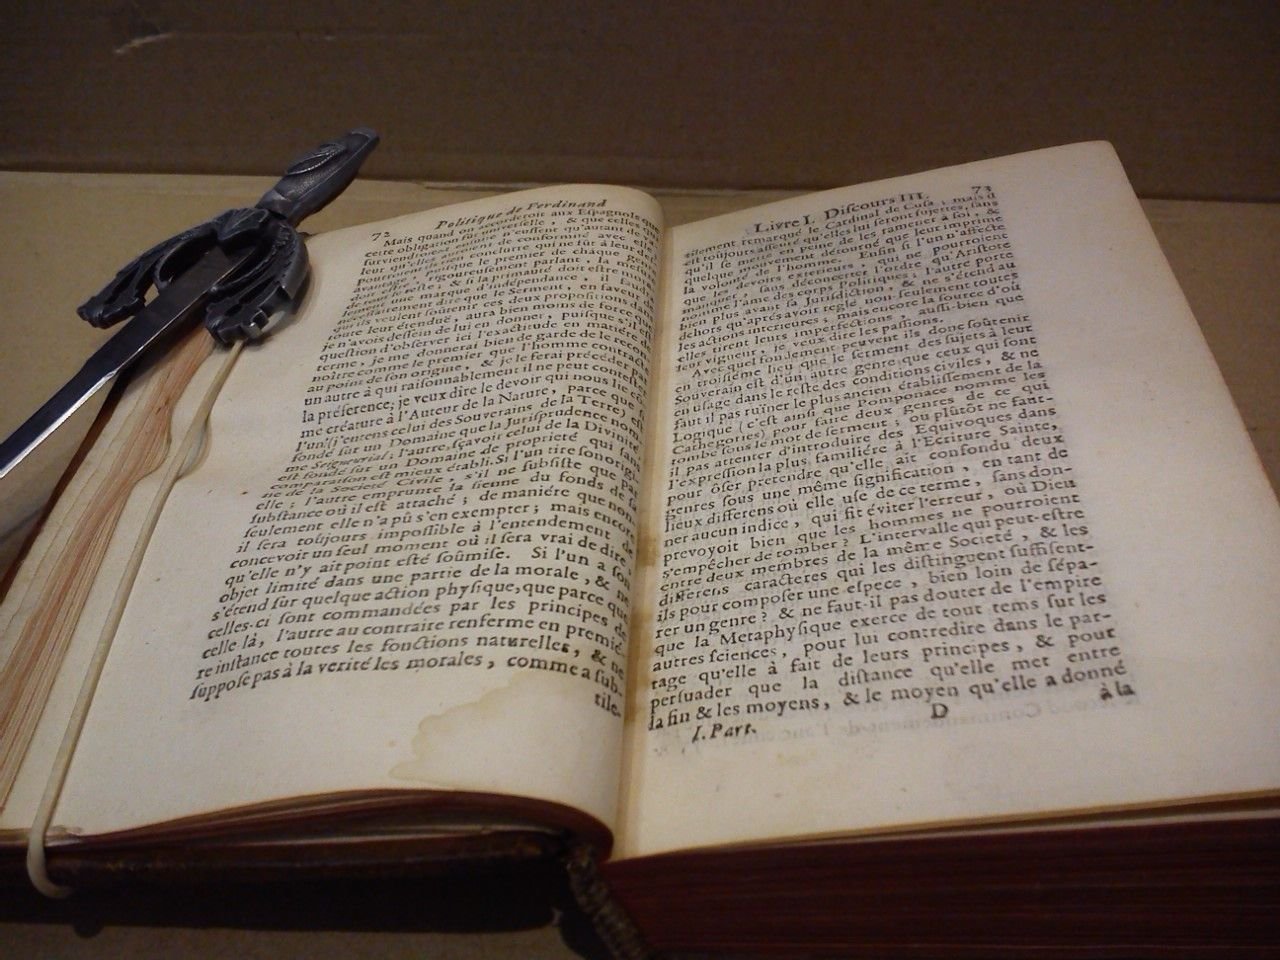 72 Politique de Ferdinand
Mais quand on accorderoit aux Espagnols que
cette obligation fût universelle, & que celles qui
surviendroient ensuite n'eussent qu'autant de va-
leur qu'elles auroient de conformité avec elle,
pourroient-ils conclurre qui ne fût à leur des-
avantage, puisque le premier de chaque genre
doit, rigoureusement parlant, la mesure
de tout le reste; & si la primauté doit estre indubita-
une marque d'indépendance, il faudra
nécessairement dire que le Serment, en faveur du-
quel ils veulent soûtenir ces deux propositions dans
toute leur étenduë, aura bien moins de force que
je n'avois dessein de lui en donner, puisque s'il est
question d'observer ici l'exactitude en matiére de
terme, je me donnerai bien de garde de le recon-
noître comme le premier que l'homme contracte
au point de son origine, & je le ferai précéder par
un autre à qui raisonnablement il ne peut contester
la préférence; je veux dire le devoir qui nous lie com-
me créature à l'Auteur de la Nature, parce que si
l'un (j'entens celui des Souverains de la Terre) est
fondé sur un Domaine que la Jurisprudence nom-
me Seigneurial; l'autre, sçavoir celui de la Divinité
est fondé sur un Domaine de proprieté qui sans
comparaison est mieux établi. Si l'un tire son origi-
ne de la Societé Civile, s'il ne subsiste que par
elle; l'autre emprunte la sienne du fonds de la
substance où il est attaché; de maniére que non-
seulement elle n'a pû s'en exempter; mais encore
il sera toûjours impossible à l'entendement de
concevoir un seul moment où il sera vrai de dire,
qu'elle n'y ait point esté soûmise. Si l'un a son
objet limité dans une partie de la morale, & ne
s'étend sur quelque action physique, que parce que
celles-ci sont commandées par les principes de
celle là, l'autre au contraire renferme en premié-
re instance toutes les fonctions naturelles, & ne
suppose pas à la verité les morales, comme a sub-
tile-
Livre I. Discours III. 73
tilement remarqué le Cardinal de Cusa; mais il
est toûjours asseuré qu'elles lui seront sujettes, sans
qu'il se mette en peine de les ramener à soi, &
quelque mouvement détourné que leur imprime
la volonté de l'homme. Enfin si l'un n'affecte
que les devoirs exterieurs, qui ne pourroient
manquer, sans déconcerter l'ordre qu'Aristote
nomme l'ame des corps Politiques; l'autre porte
bien plus avant sa Jurisdiction, & ne s'étend au
dehors qu'aprés avoir reglé non-seulement toutes
les actions interieures; mais encore la source d'où
elles tirent leurs imperfections, aussi-bien que
leur vigueur, je veux dire les passions.
Avec quel fondement peuvent ils donc soûtenir
en troisiéme lieu que le serment des sujets à leur
Souverain est d'un autre genre que ceux qui sont
en usage dans le reste des conditions civiles, & ne
faut il pas ruïner le plus ancien établissement de la
Logique (c'est ainsi que Pomponace nomme les
Cathegories) pour faire deux genres de ce qui
tombe sous le mot de serment; ou plûtôt ne faut-
il pas attenter d'introduire des Equivoques dans
l'expression la plus familiére à l'Ecriture Sainte,
pour ôser prétendre qu'elle ait confondu deux
genres sous une même signification, en tant de
lieux differens où elle use de ce terme, sans don-
ner aucun indice, qui fit éviter l'erreur, où Dieu
prevoyoit bien que les hommes ne pourroient
s'empêcher de tomber? L'intervalle qui peut-estre
entre deux membres de la même Societé, & les
differens caracteres qui les distinguent suffisent-
ils pour composer une espece, bien loin de sépa-
rer un genre? & ne faut-il pas douter de l'empire
que la Metaphysique exerce de tout tems sur les
autres sciences, pour lui contredire dans le par-
tage qu'elle à fait de leurs principes, & pour
persuader que la distance qu'elle met entre
la fin & les moyens, & le moyen qu'elle a donné
I. Part. D à la